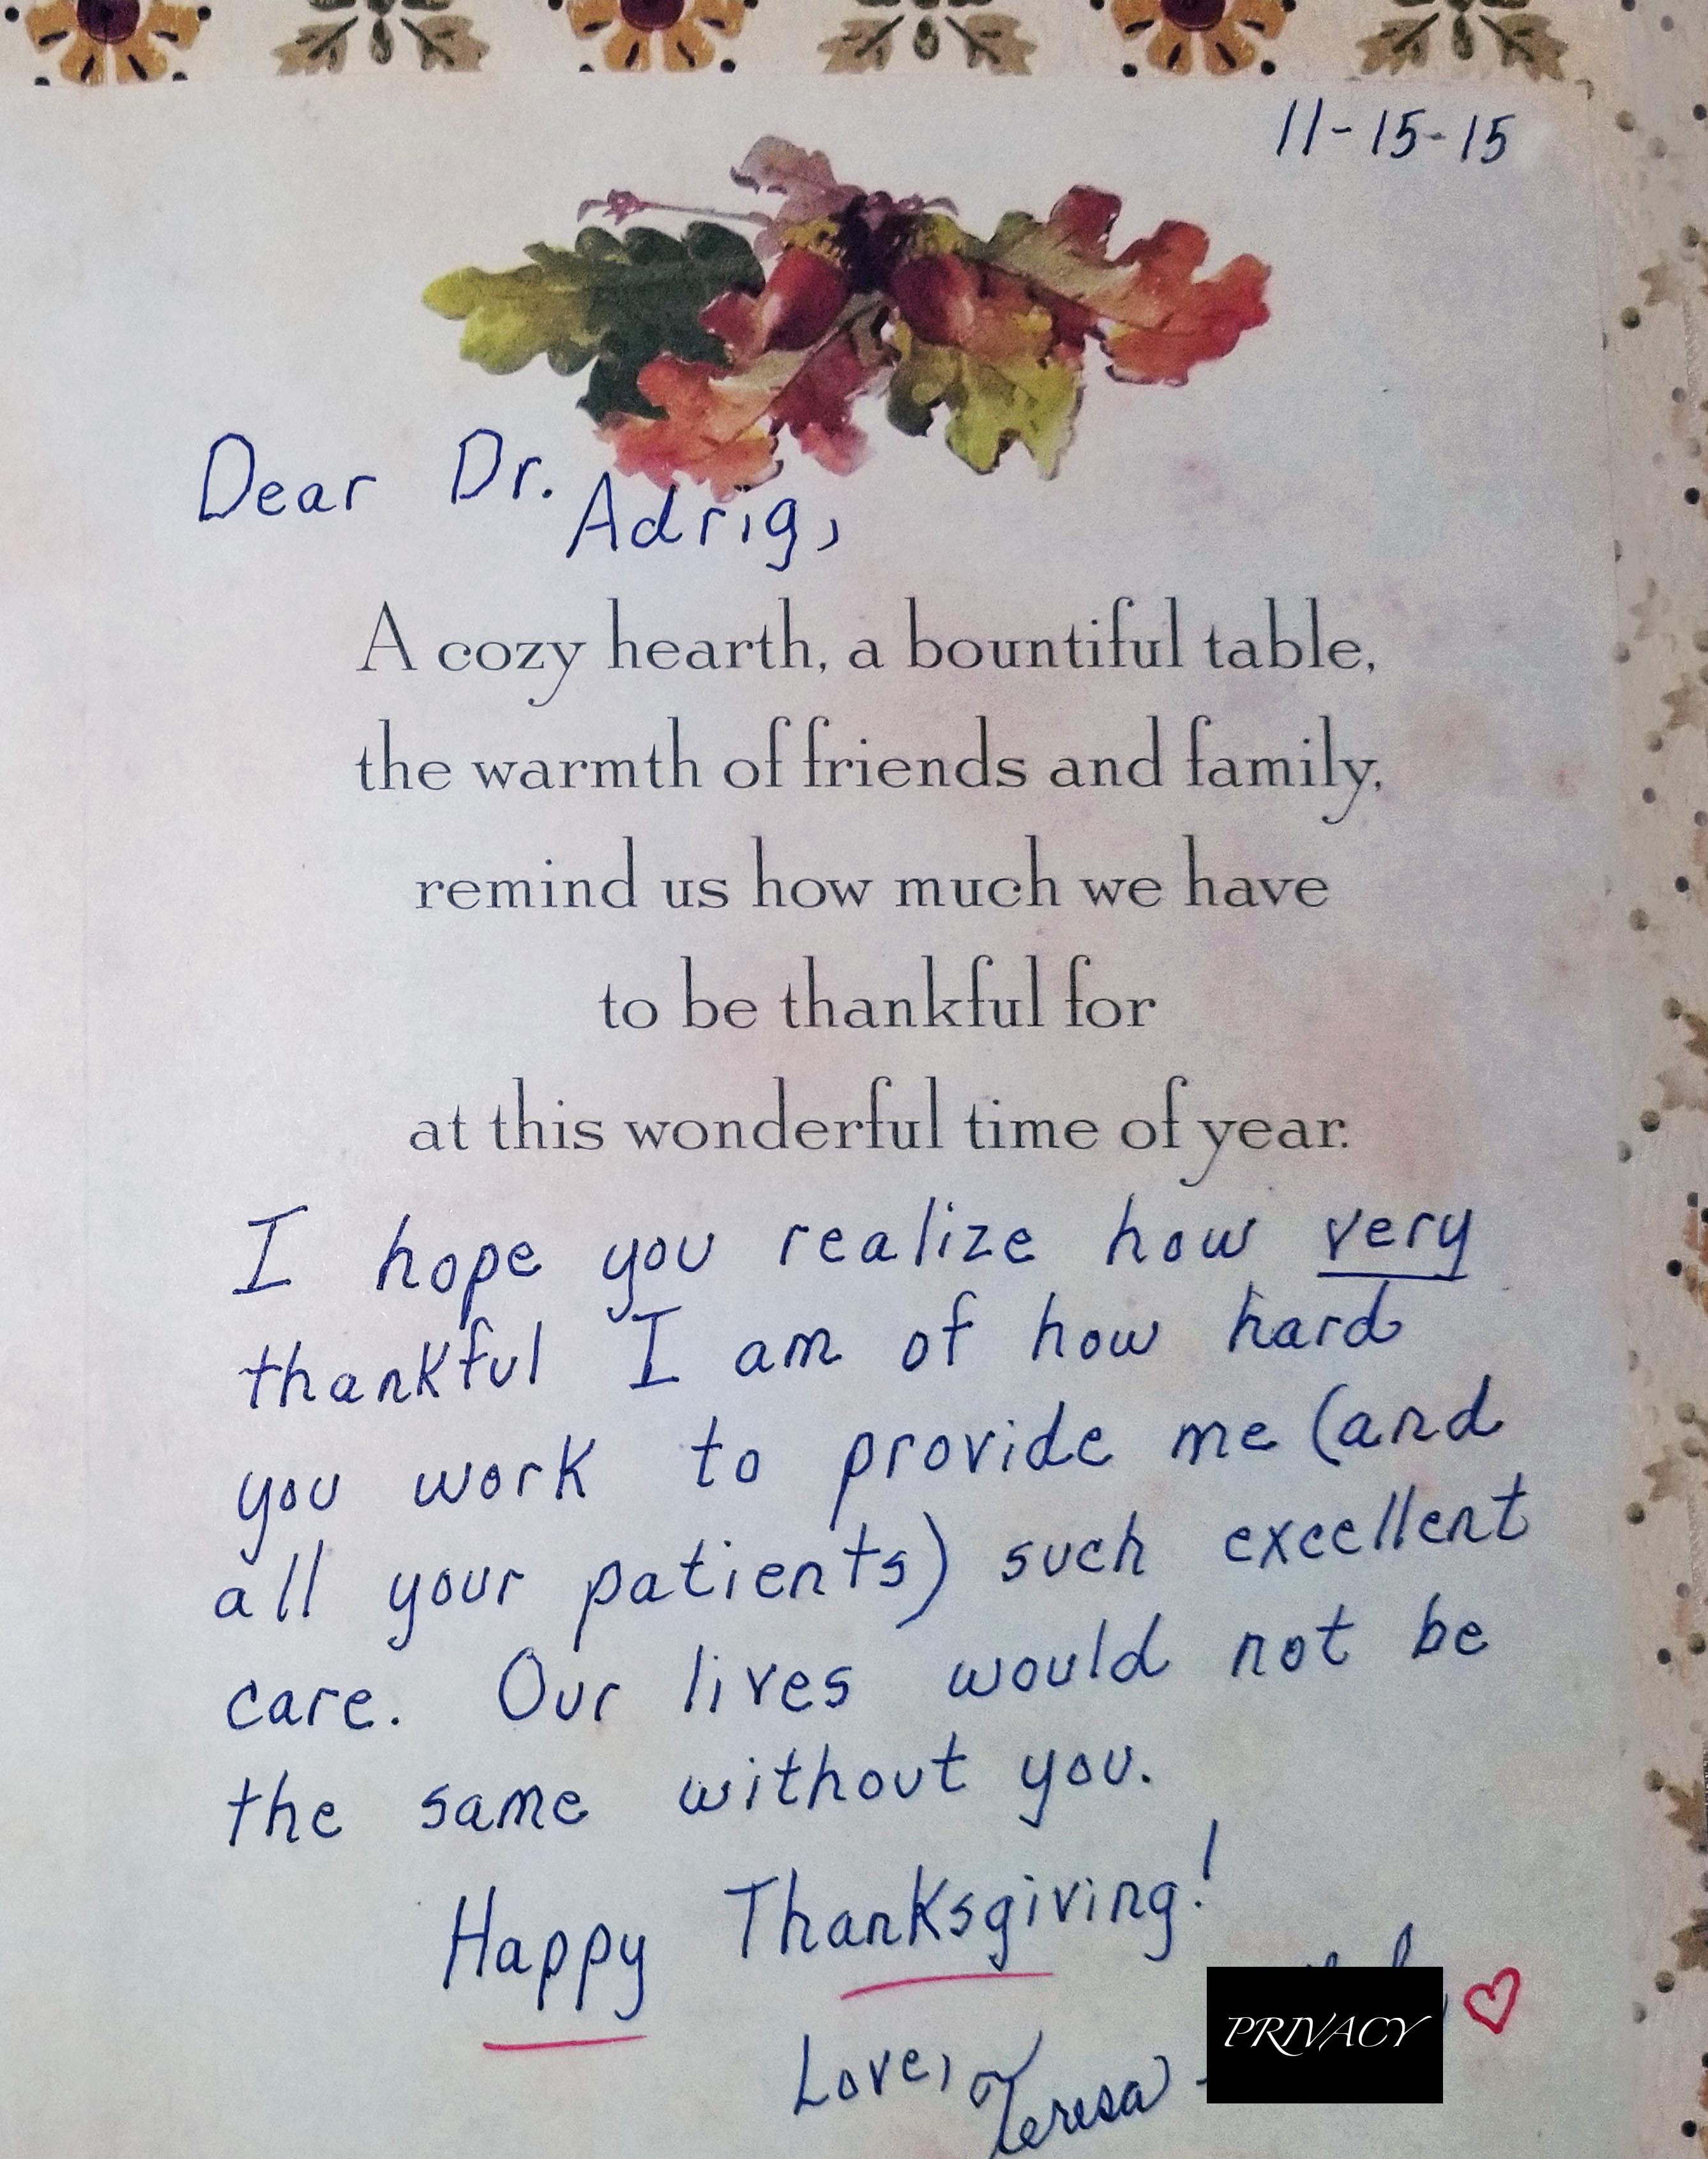 11-15-15
Dear Dr. Adrig,
A cozy hearth, a bountiful table,
the warmth of friends and family,
remind us how much we have
to be thankful for
at this wonderful time of year.
I hope you realize how very
thankful I am of how hard
you work to provide me (and
all your patients) such excellent
care. Our lives would not be
the same without you.
Happy Thanksgiving!
Love, Teresa
PRIVACY